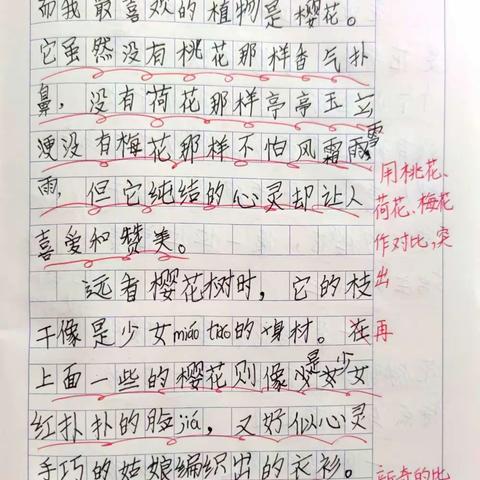 而我最喜欢的植物是樱花。
它虽然没有桃花那样香气扑
鼻，没有荷花那样亭亭玉立
更没有梅花那样不怕风霜雨雪
雨，但它纯结的心灵却让人
喜爱和赞美。
远看樱花树时，它的枝
干像是少女miáo tiáo的身材。在
上面一些的樱花则像是少女
红扑扑的脸jiá，又好似心灵
手巧的姑娘编织出的衣衫。
用桃花、
荷花、梅花
作对比，突
出
再
新奇的比